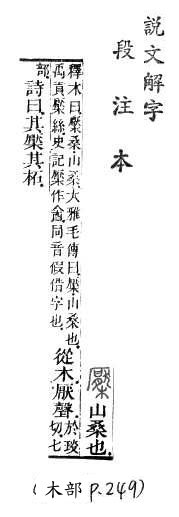 説文解字
段注本
檿山桑也。
釋木曰。檿桑、山桑。大雅毛傳曰。檿、山桑也。
禹貢檿絲。史記檿作酓。同音假借字也。
從木。厭聲。
於琰
切。七
部。
詩曰。其檿其柘。
(木部 p.249)